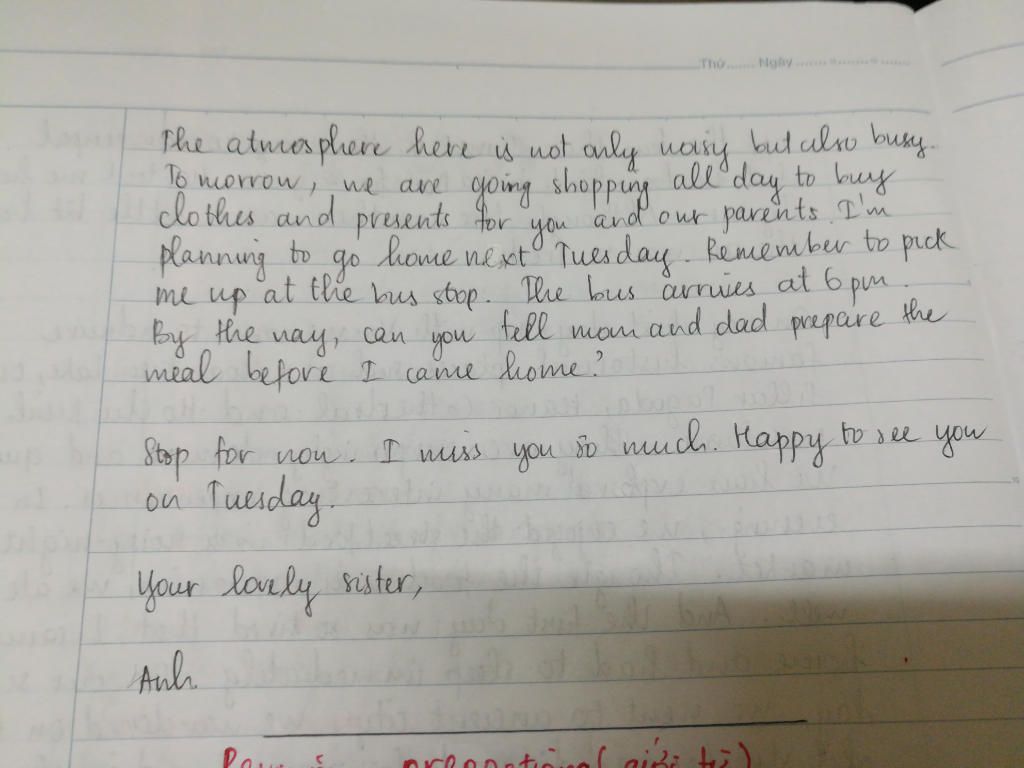 Thứ....... Ngày ........-........-........
The atmosphere here is not only noisy but also busy.
Tomorrow, we are going shopping all day to buy
clothes and presents for you and our parents. I'm
planning to go home next Tuesday. Remember to pick
me up at the bus stop. The bus arrives at 6 pm.
By the way, can you tell mom and dad prepare the
meal before I came home?
Stop for now. I miss you so much. Happy to see you
on Tuesday.
Your lovely sister,
Anh.
(giới từ)